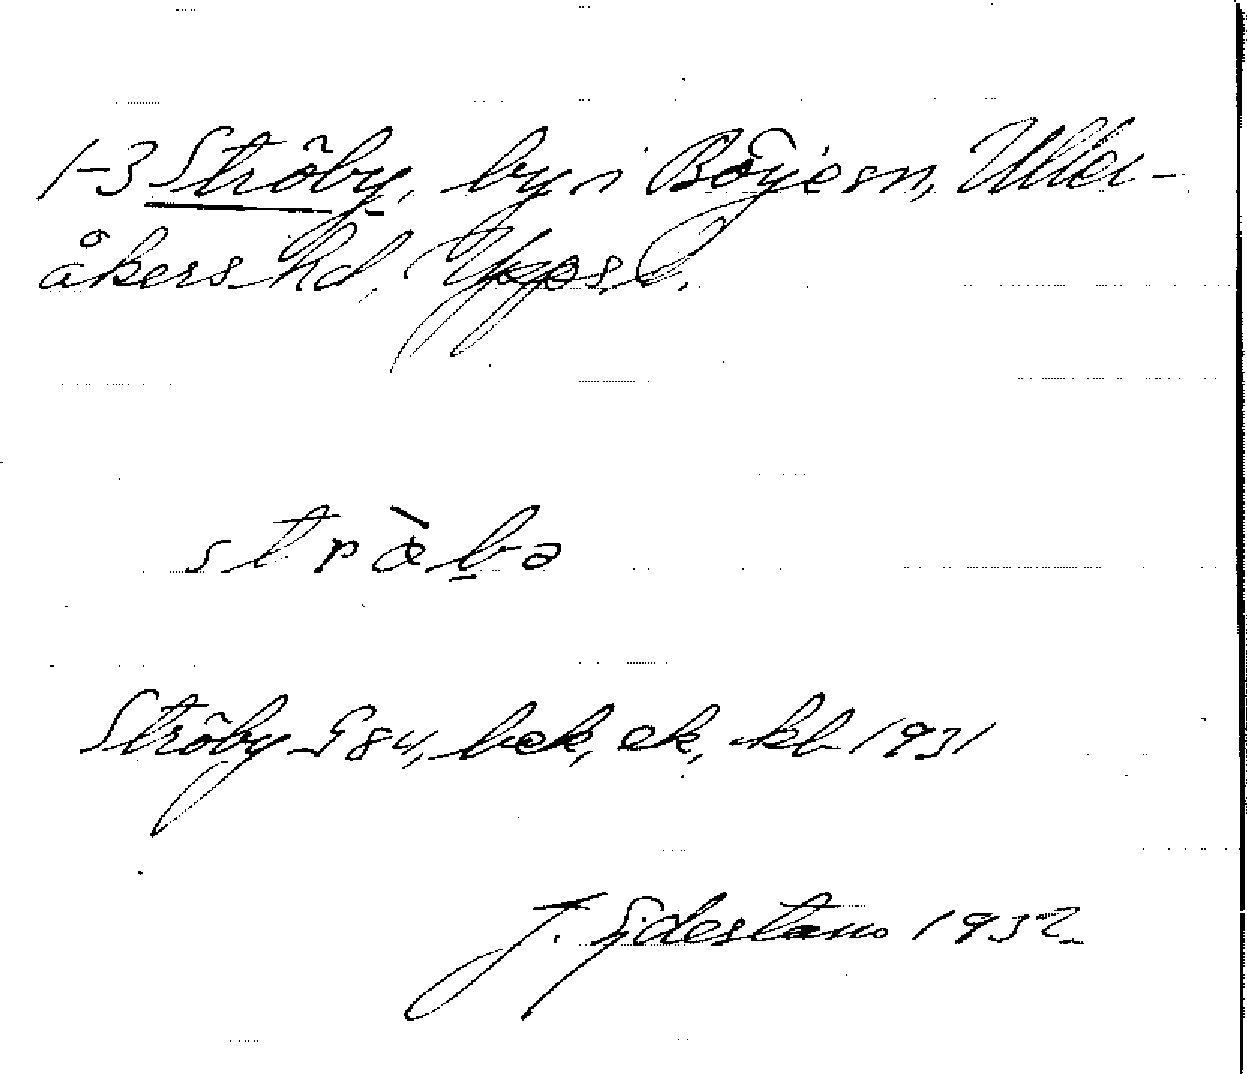 1-3 Ströby, by i Börje sn, Uller-
åkers hd, Upps. l.
stræ̀bə
Ströby G 84, bek, ek, kb 1931
J. Sjdestam 1932